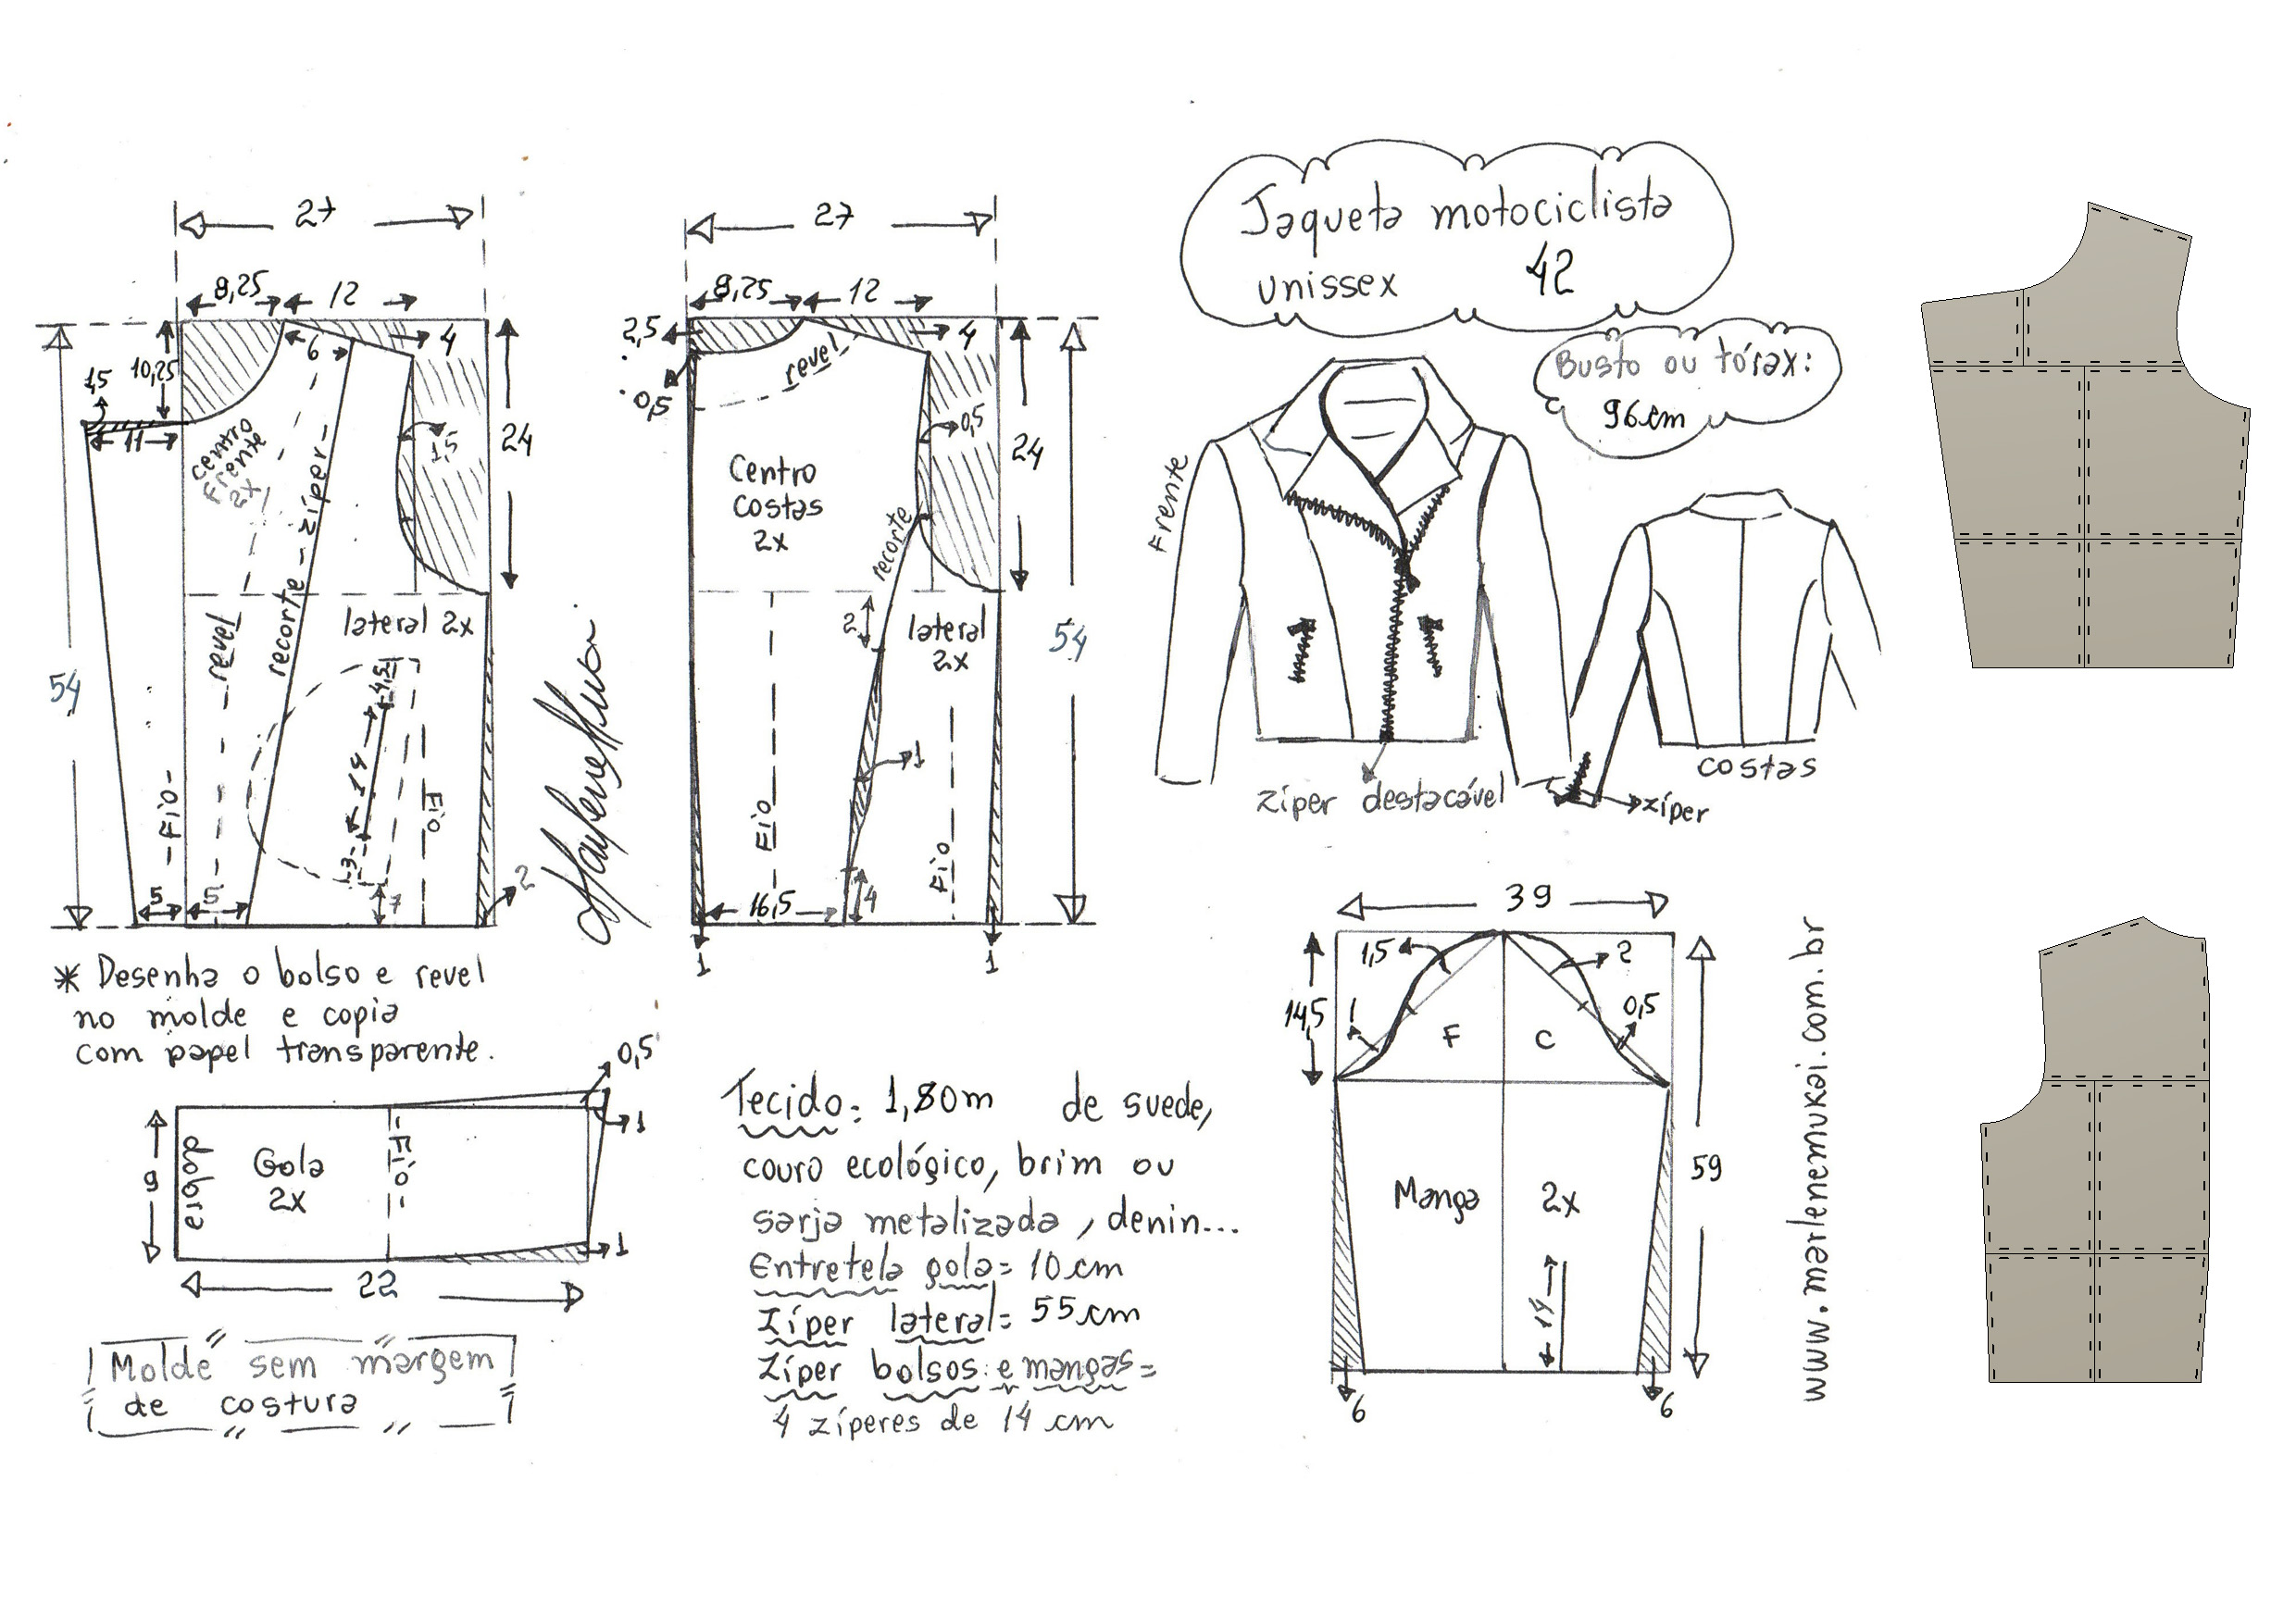 27
8,25
12
6
4
10,25
1,5
11
1,5
24
centro
frente
2x
recorte - zíper -
revel
lateral 2x
4,5
14
3
7
54
- Fio -
Fio
5
5
2
27
8,25
12
2,5
4
0,5
revel
0,5
24
Centro
costas
2x
recorte
2
lateral
2x
54
1
Fio
Fio
16,5
4
1
1
Jaqueta motociclista
unissex 42
Busto ou tórax:
96cm
Frente
zíper destacável
costas
zíper
* Desenha o bolso e revel
no molde e copia
com papel transparente.
0,5
1
9
dobra
Gola
2x
- Fio -
1
22
Molde sem margem
de costura
Tecido: 1,80m de suede,
couro ecológico, brim ou
sarja metalizada, denin...
Entretela gola = 10 cm
Zíper lateral = 55 cm
Zíper bolsos e mangas =
4 zíperes de 14 cm
39
1,5
2
14,5
1
0,5
F
C
59
Manga 2x
14
6
6
www.marlenemukai.com.br